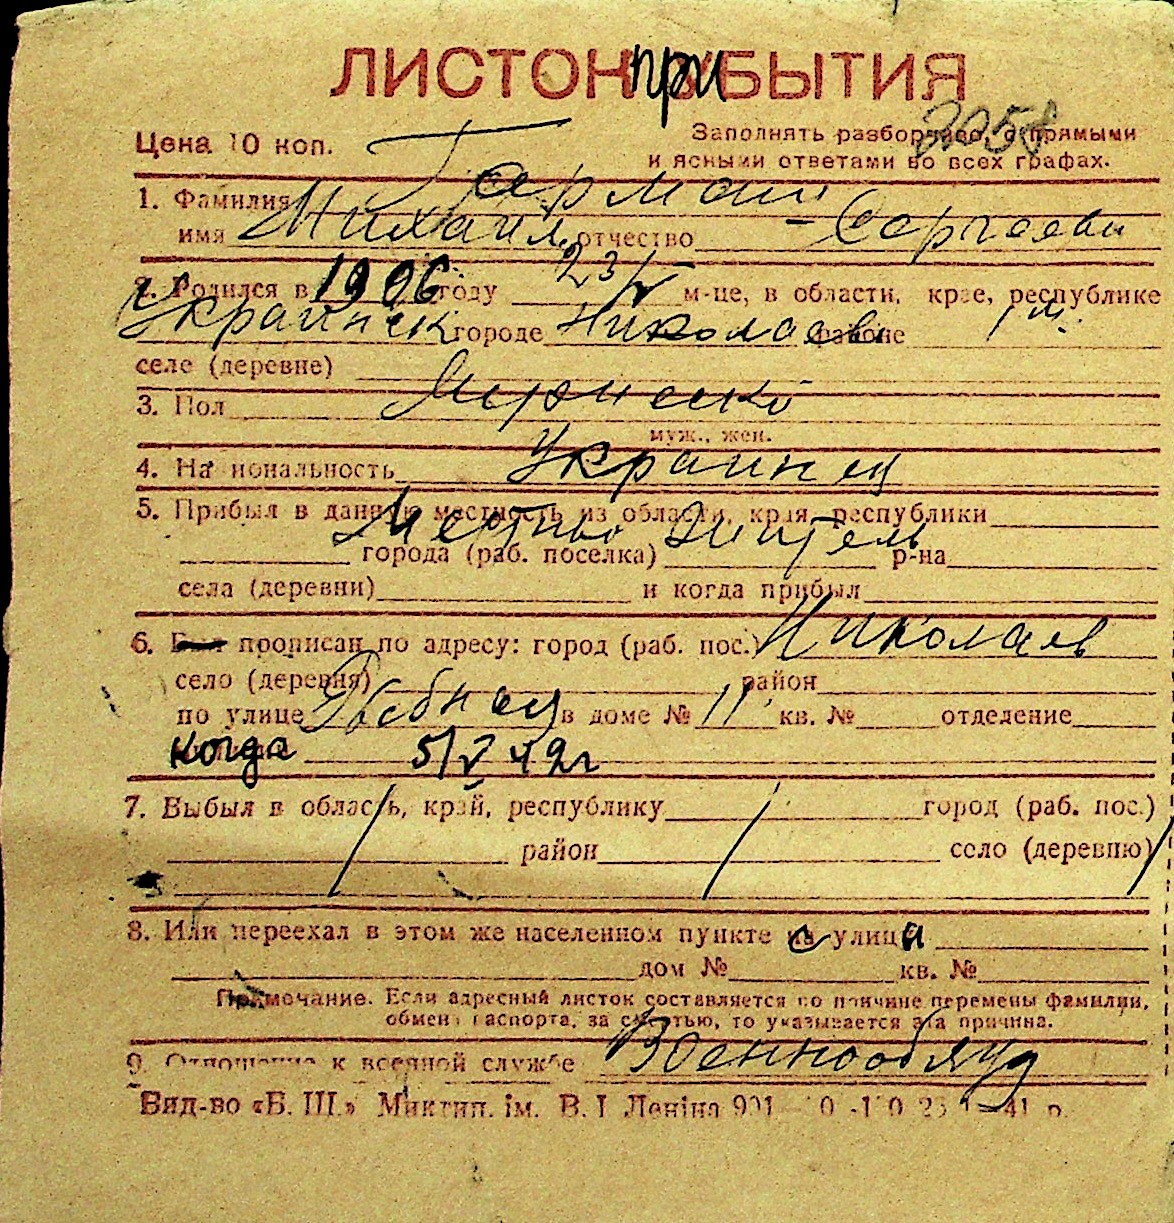 ЛИСТОК при БЫТИЯ
2058
Цена 10 коп.
Заполнять разборчиво, с прямыми
и ясными ответами во всех графах.
1. Фамилия Герман
имя Михаил отчество Сергеевич
2. Родился в 1906 году 23/V м-це, в области, крае, республике
Украинск городе Николаев районе
селе (деревне)
3. Пол Мужской
муж., жен.
4. Национальность Украинец
5. Прибыл в данную местность из области, края, республики
Местный житель
города (раб. поселка) р-на
села (деревни) и когда прибыл
6. Был прописан по адресу: город (раб. пос.) Николаев
село (деревня) район
по улице в доме № 11 кв. № отделение
когда 5/V 42 г
7. Выбыл в область, край, республику город (раб. пос.)
район село (деревню)
8. Или переехал в этом же населенном пункте с улица
дом № кв. №
Примечание. Если адресный листок составляется по причине перемены фамилии,
обмена паспорта, за смертью, то указывается эта причина.
9. Отношение к военной службе Военнообяз
Вид-во «Б. Ш.» Миктип. ім. В. І. Леніна 901 41 р.